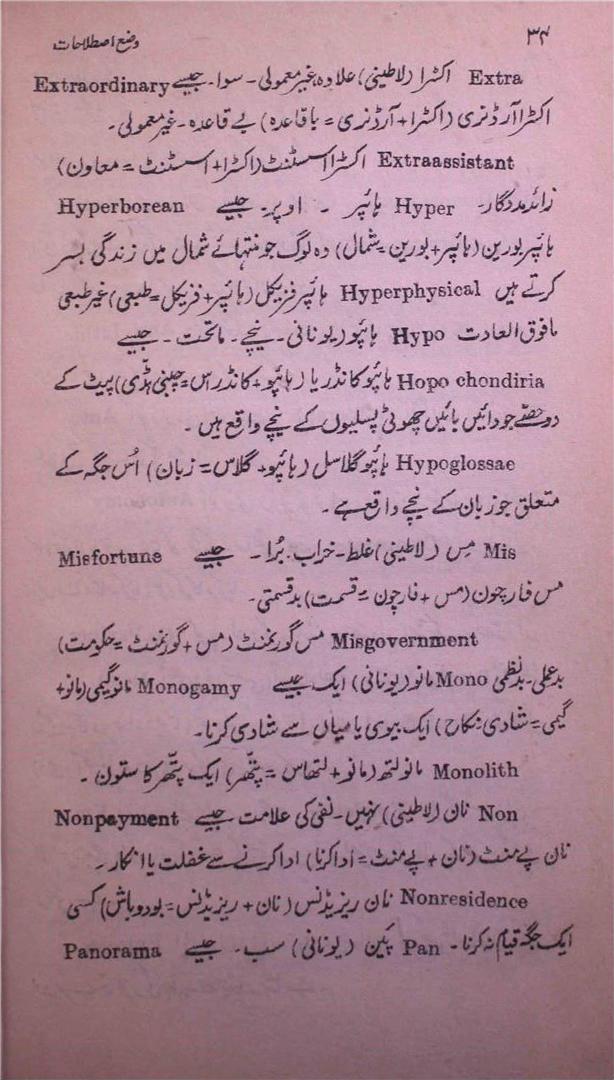 ۳۴ وضع اصطلاحات
Extra اکسٹرا (لاطینی) علاوہ، غیر معمولی۔ سوا۔ جیسے Extraordinary
اکسٹرا آرڈنری (اکسٹرا + آرڈنری = باقاعدہ) بے قاعدہ۔ غیر معمولی۔
Extraassistant اکسٹرا اسسٹنٹ (اکسٹرا + اسسٹنٹ = معاون)
زائد مددگار۔ Hyper ہائپر ۔ اوپر۔ جیسے Hyperborean
ہائپربورین (ہائپر + بورین = شمال) وہ لوگ جو منتہائے شمال میں زندگی بسر
کرتے ہیں Hyperphysical ہائپر فزیکل (ہائپر + فزیکل = طبعی) غیر طبعی
مافوق العادت Hypo ہائپو (یونانی۔ نیچے۔ ماتحت۔ جیسے
Hopo chondiria ہائپو کانڈریا (ہائپو + کانڈراس = چپنی ہڈی) پیٹ کے
دو حصے جو دائیں بائیں چھوٹی پسلیوں کے نیچے واقع ہیں ۔
Hypoglossae ہائپو گلاسل (ہائپو + گلاس = زبان) اُس جگہ کے
متعلق جو زبان کے نیچے واقع ہے ۔
Mis مِس (لاطینی) غلط۔ خراب۔ بُرا ۔ جیسے Misfortune
مس فارچون (مس + فارچون = قسمت) بدقسمتی۔
Misgovernment مس گورنمنٹ (مس + گورنمنٹ = حکومت)
بدعملی۔ بدنظمی Mono مانو (یونانی) ایک جیسے Monogamy مانوگیمی (مانو +
گیمی = شادی نکاح) ایک بیوی یا میاں سے شادی کرنا۔
Monolith مانولتھ (مانو + لتھاس = پتّھر) ایک پتّھر کا ستون ۔
Non نان (لاطینی) نہیں۔ نفی کی علامت جیسے Nonpayment
نان پے منٹ (نان + پے منٹ = ادا کرنا) ادا کرنے سے غفلت یا انکار ۔
Nonresidence نان ریزیڈنس (نان + ریزیڈنس = بودوباش) کسی
ایک جگہ قیام نہ کرنا۔ Pan پَین (یونانی) سب۔ جیسے Panorama